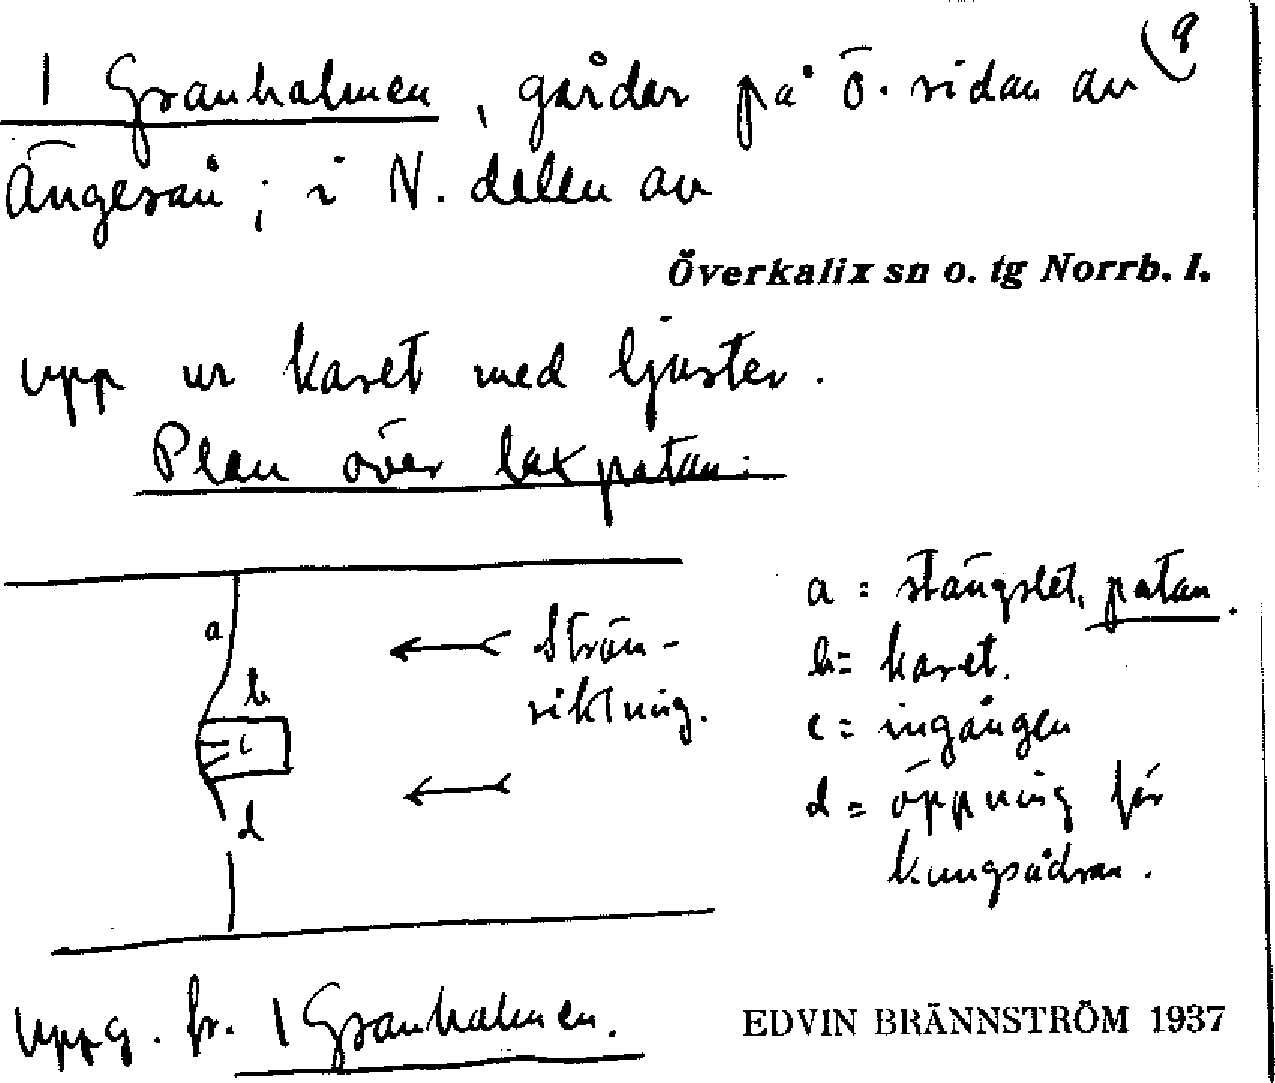 9
1 Granholmen, gårdar på ö. sidan av
Ängesån; i N. delen av
Överkalix sn o. tg Norrb. l.
upp ur karet med ljuster.
Plan över laxpatan:
a = stängslet, patan.
a
Ström-
b = karet.
b
riktning.
c = ingången
c
d = öppning för
d
kungsådran.
Uppg. fr. 1 Granholmen.
EDVIN BRÄNNSTRÖM 1937